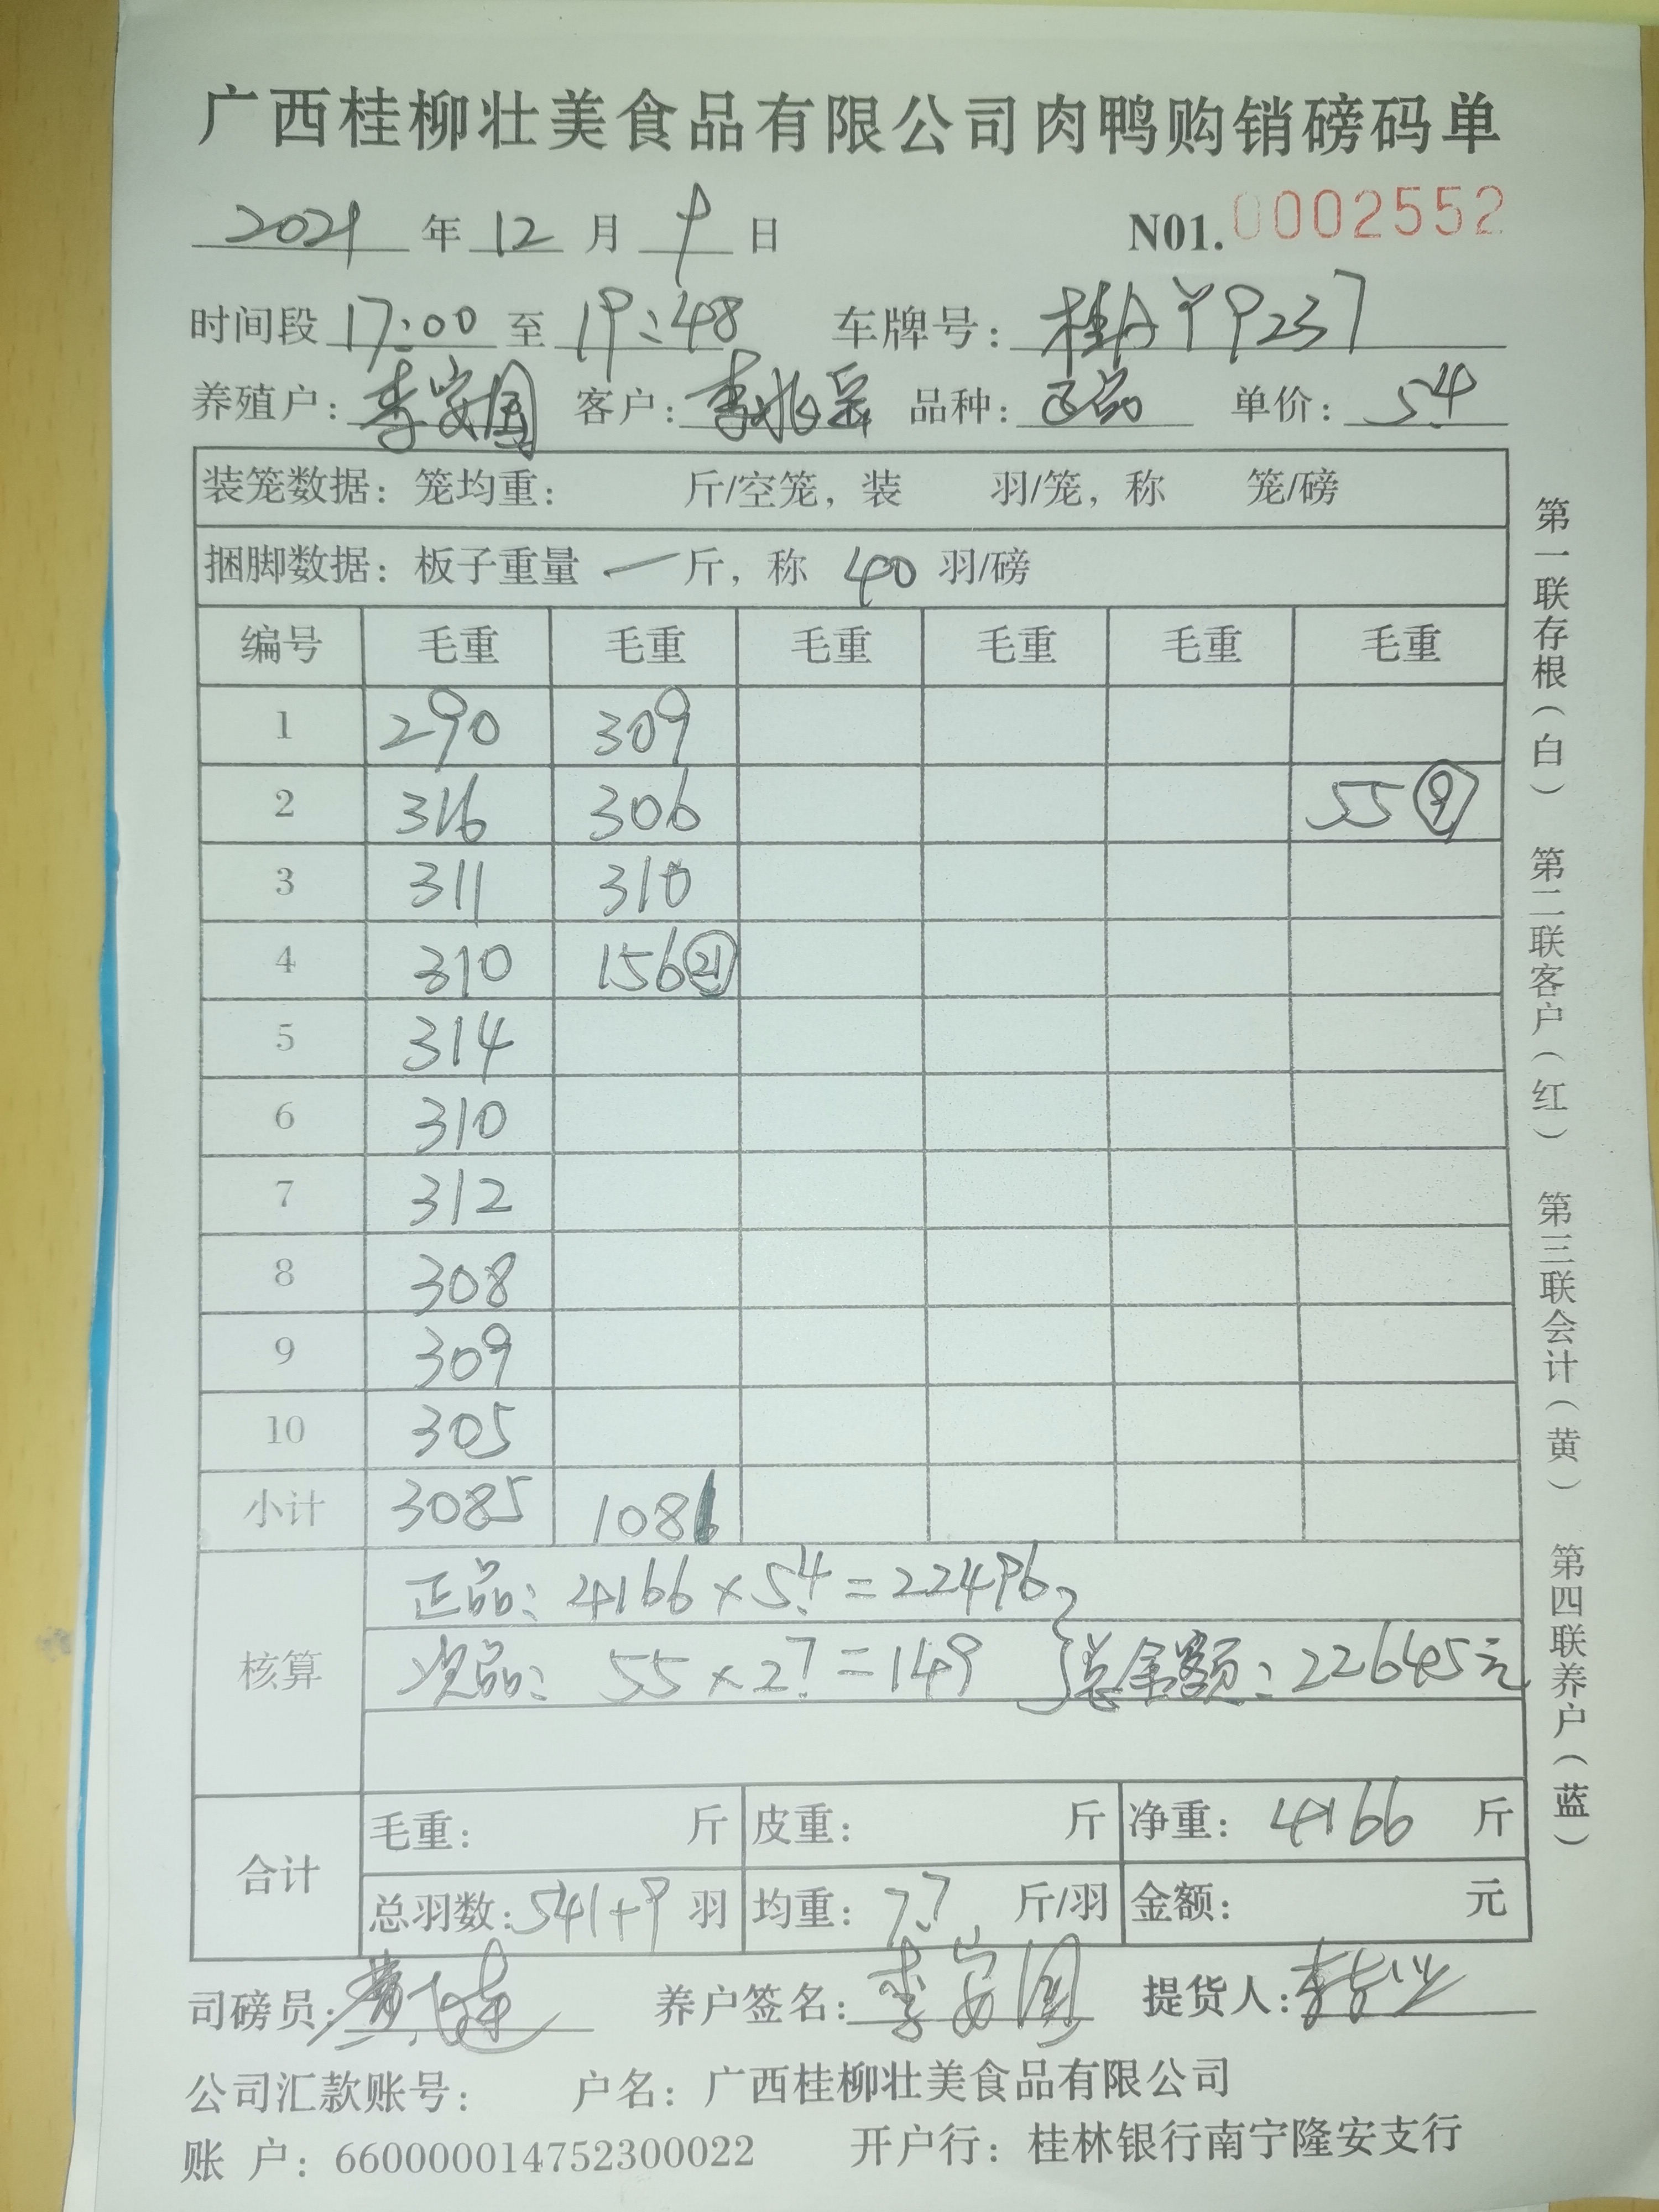 广西桂柳壮美食品有限公司肉鸭购销磅码单
2021 年 12 月 9 日 N01. 0002552
时间段 17:00 至 19:48 车牌号: 桂AYP237
养殖户: 李安国 客户: 李兆 品种: 正品 单价: 5.4
装笼数据: 笼均重: 斤/空笼, 装 羽/笼, 称 笼/磅
捆脚数据: 板子重量 一 斤, 称 40 羽/磅
编号 毛重 毛重 毛重 毛重 毛重 毛重
1 290 309
2 316 306 55 ⑨
3 311 310
4 310 156 ㉑
5 314
6 310
7 312
8 308
9 309
10 305
小计 3085 1081
核算
正品: 4166×5.4=22496
次品: 55×2.7=149 } 总金额: 22645元
合计
毛重: 斤 皮重: 斤 净重: 4166 斤
总羽数: 541+9 羽 均重: 7.7 斤/羽 金额: 元
司磅员: 养户签名: 李安国 提货人:
公司汇款账号: 户名: 广西桂柳壮美食品有限公司
账 户: 660000014752300022 开户行: 桂林银行南宁隆安支行
第一联存根(白) 第二联客户(红) 第三联会计(黄) 第四联养户(蓝)